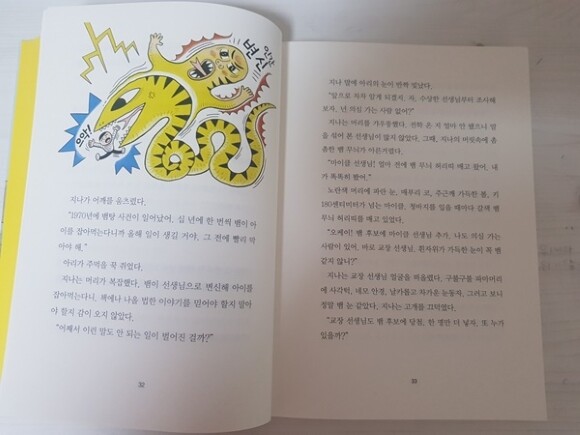 인간
변신
으악!
지나가 어깨를 움츠렸다.
"1970년에 뱀탕 사건이 일어났어, 십 년에 한 번씩 뱀이 아
이를 잡아먹는다니까 올해 일이 생길 거야, 그 전에 빨리 막
아야 돼."
아리가 주먹을 꼭 쥐었다.
지나는 머리가 복잡했다. 뱀이 선생님으로 변신해 아이를
잡아먹는다니, 책에나 나올 법한 이야기를 믿어야 할지 말아
야 할지 감이 오지 않았다.
"어째서 이런 말도 안 되는 일이 벌어진 걸까?"
32
지나 말에 아리의 눈이 반짝 빛났다.
"앞으로 차차 알게 되겠지. 자, 수상한 선생님부터 조사해
보자, 넌 의심 가는 사람 없어?"
지나는 머리를 갸우뚱했다. 전학 온 지 얼마 안 됐으니 말
을 섞어 본 선생님이 많지 않았다. 그때, 지나의 머릿속에 촘
촘한 뱀 무늬가 아른거렸다.
"마이클 선생님! 얼마 전에 뱀 무늬 허리띠 매고 왔어, 내
가 똑똑히 봤어."
노란색 머리에 파란 눈, 매부리 코, 주근깨 가득한 볼, 키
180센티미터가 넘는 마이클, 청바지를 입을 때마다 갈색 뱀
무늬 허리띠를 매고 있었다.
"오케이! 뱀 후보에 마이클 선생님 추가, 나도 의심 가는
사람이 있어, 바로 교장 선생님, 흰자위가 가득한 눈이 꼭 뱀
같지 않니?"
지나는 교장 선생님 얼굴을 떠올렸다. 구불구불 파마머리
에 사각턱, 네모 안경, 날카롭고 차가운 눈동자, 그러고 보니
정말 뱀 눈 같았다. 지나는 고개를 끄덕였다.
"교장 선생님도 뱀 후보에 당첨, 한 명만 더 넣자, 또 누가
있을까?"
33